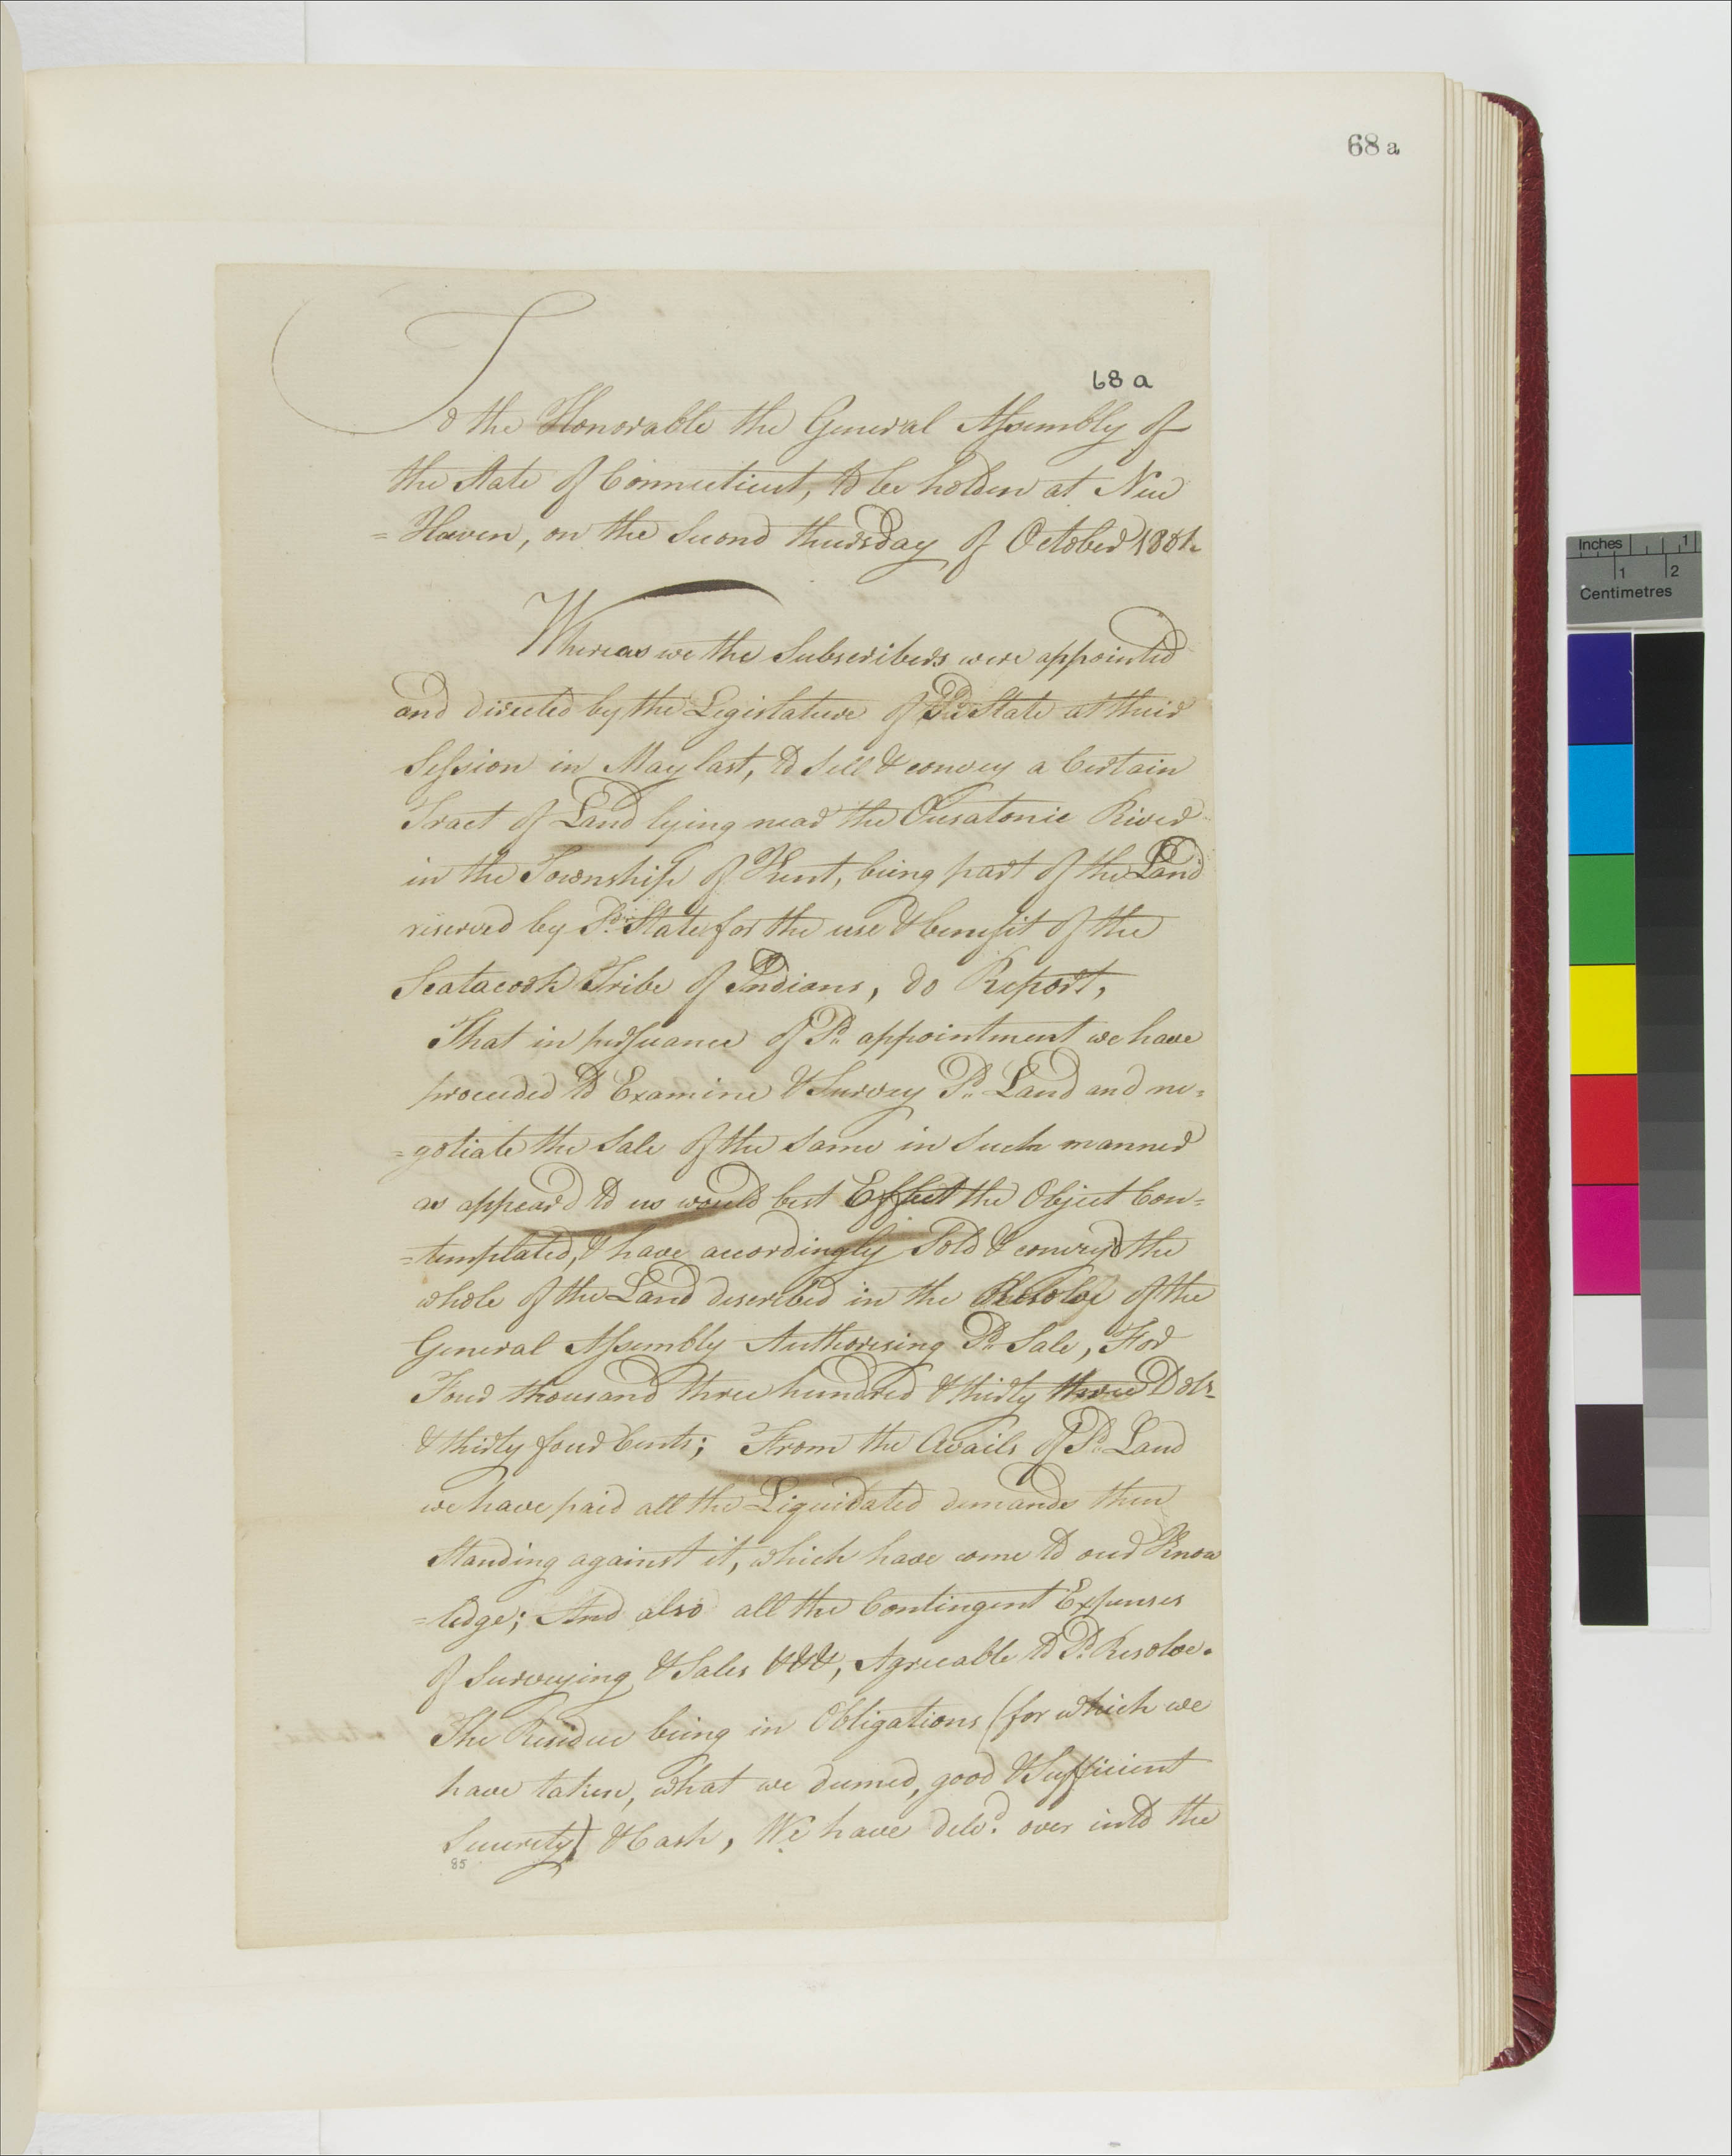 68 a
68 a
To the Honorable the General Assembly of
the State of Connecticut, to be holden at New
=Haven, on the Second thursday of October 1801.
Whereas we the Subscribers were appointed
and directed by the Legislature of Sd State at their
Session in May last, to Sell & convey a Certain
Tract of Land lying near the Ousatonic River
in the Township of Kent, being part of the Land
reserved by Sd State for the use & benefit of the
Scatacook Tribe of Indians, do Report,
That in pursuance of Sd appointment we have
proceeded to Examine & Survey Sd Land and ne=
=gotiate the Sale of the same in Such manner
as appear'd to us would best Effect the Object Con=
=templated, & have accordingly Sold & convey'd the
whole of the Land described in the Resolve of the
General Assembly Authorising Sd Sale, For
Four thousand three hundred & thirty three Dols
& thirty four Cents; From the Avails of Sd Land
we have paid all the Liquidated demands then
Standing against it, which have come to our Know
=ledge; And also all the Contingent Expenses
of Surveying & Sales &&&, Agreeable to Sd Resolve.
The Residue being in Obligations (for which we
have taken, what we deemed, good & Sufficient
Security) & Cash, We have deld. over into the
85
Inches 1
1 2
Centimetres